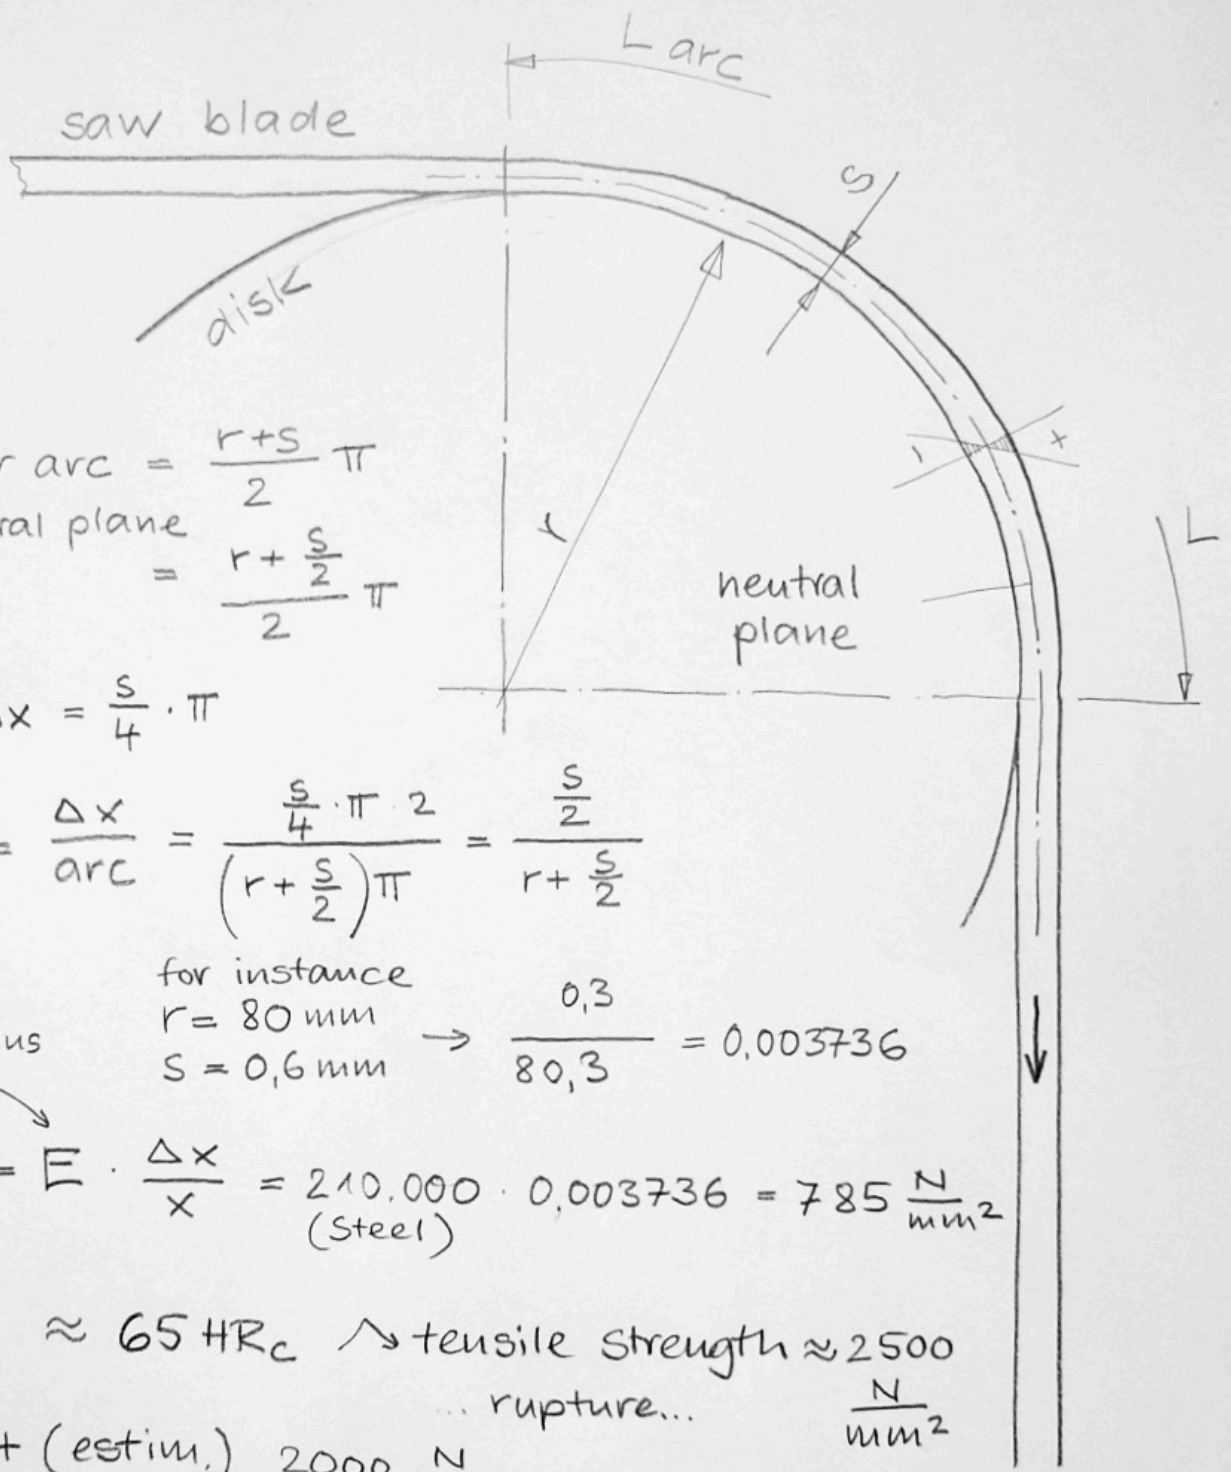 L arc
saw blade
S
disk
r arc = (r+s)/2 π
ral plane
= (r + s/2)/2 π
- +
r
L
neutral
plane
x = s/4 · π
= Δx/arc = (s/4 · π 2)/((r + s/2)π) = (s/2)/(r + s/2)
for instance
r = 80 mm
s = 0,6 mm → 0,3/80,3 = 0,003736
us
= E · Δx/x = 210.000 · 0,003736 = 785 N/mm²
(Steel)
≈ 65 HRc ↘ tensile strength ≈ 2500 N/mm²
.. rupture...
t (estim.) 2000 N